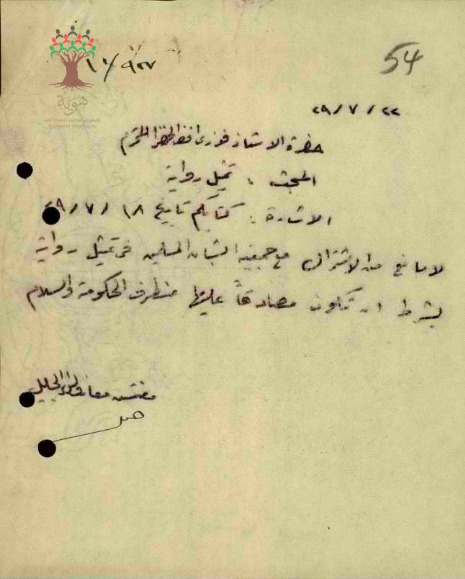 54
١٠/٩٢٧
هوية
٢٩/٧/٢٢
حضرة الاستاذ فوزي افندي المحترم
المبحث : تمثيل رواية
الاشارة : كتابكم تاريخ ١٨/٧/٢٩
لا مانع من الاشتراك مع جمعية الشبان المسلمين في تمثيل رواية
بشرط ان تكون مصادقاً عليها من طرف الحكومة والسلام
مفتش معارف لواء الجليل